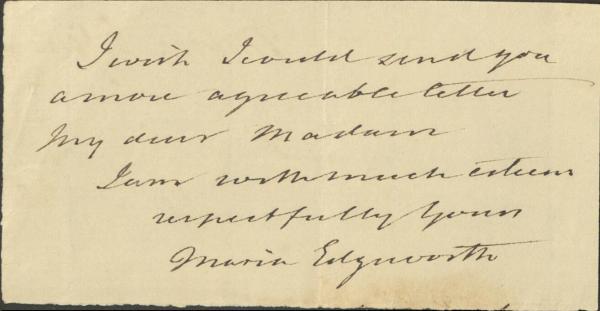 I wish I could send you
a more agreeable letter
My dear Madam
I am with much esteem
respectfully yours
Maria Edgeworth